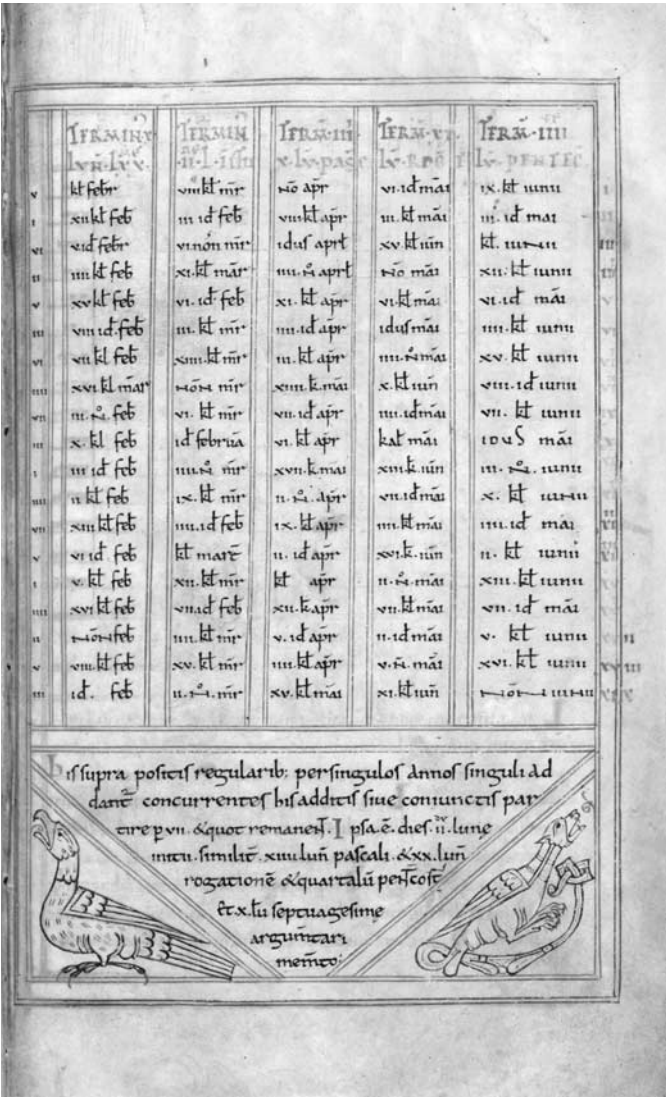 TERMIN TERMIN TERM̄ III TERM̄ TERM̄ IIII
v kł febr viii kł mr̄ No apr vi. id mai ix. kł iunii
i xii kł feb iii id feb viii kł apr iii. kł mai iii. id mai
vi v id febr vi non mr̄ idus aprł xv. kł iun̄ kł. iunii
ii iiii kł feb xi. kł mar̄ iiii. N aprł No mai xii. kł iunii
v xv kł feb vi. id feb xi. kł apr vi. kł mai vi. id mai
iii viii id. feb iii. kł mr̄ iiii. id apr idus mai iiii. kł iunii
vi vii kł feb xiiii. kł mr̄ iii. kł apr iiii. N mai xv. kł iunii
iiii xvi kł mar Non mr̄ xiiii. k. mai x. kł iun̄ viii. id iunii
vii iii. N. feb vi. kł mr̄ vii. id apr iiii. id mai vii. kł iunii
iii x. kł feb id februa vi. kł apr kał mai idus mai
i iii id feb iiii. N mr̄ xvii. k. mai xiii k. iun iii. N. iunii
iiii ii kł feb ix. kł mr̄ ii. N. apr vii. id mai x. kł iunii
vii xiii kł feb iiii. id feb ix. kł apr iiii. kł mai iiii. id mai
v vi id. feb kł mart̄ ii. id apr xvi. k. iun̄ ii. kł iunii
i v. kł feb xii. kł mr̄ kł apr ii. N. mai xiii. kł iunii
iiii xvi kł feb vii. id feb xii. k. apr vii. kł mai vii. id mai
ii Non feb iiii. kł mr̄ v. id apr ii. id mai v. kł iunii
v viii. kł feb xv. kł mr̄ iiii. kł apr v. N. mai xvi. kł iunii
iii id. feb ii. N. mr̄ xv. kł mai xi. kł iun̄ Non iunii
his supra positis regularib; per singulos annos singuli ad
dant̄ concurrentes his additis siue coniunctis par
tire p vii. & quot remanet̄. Ipsa. ē. dies. ii. lune
initii. similit̄. xiiii. lun̄ pascali. & xx. lun̄
rogationē & quarta lū pent̄cost̄
Et x. lū septuagesime
argum̄tari
mem̄to: